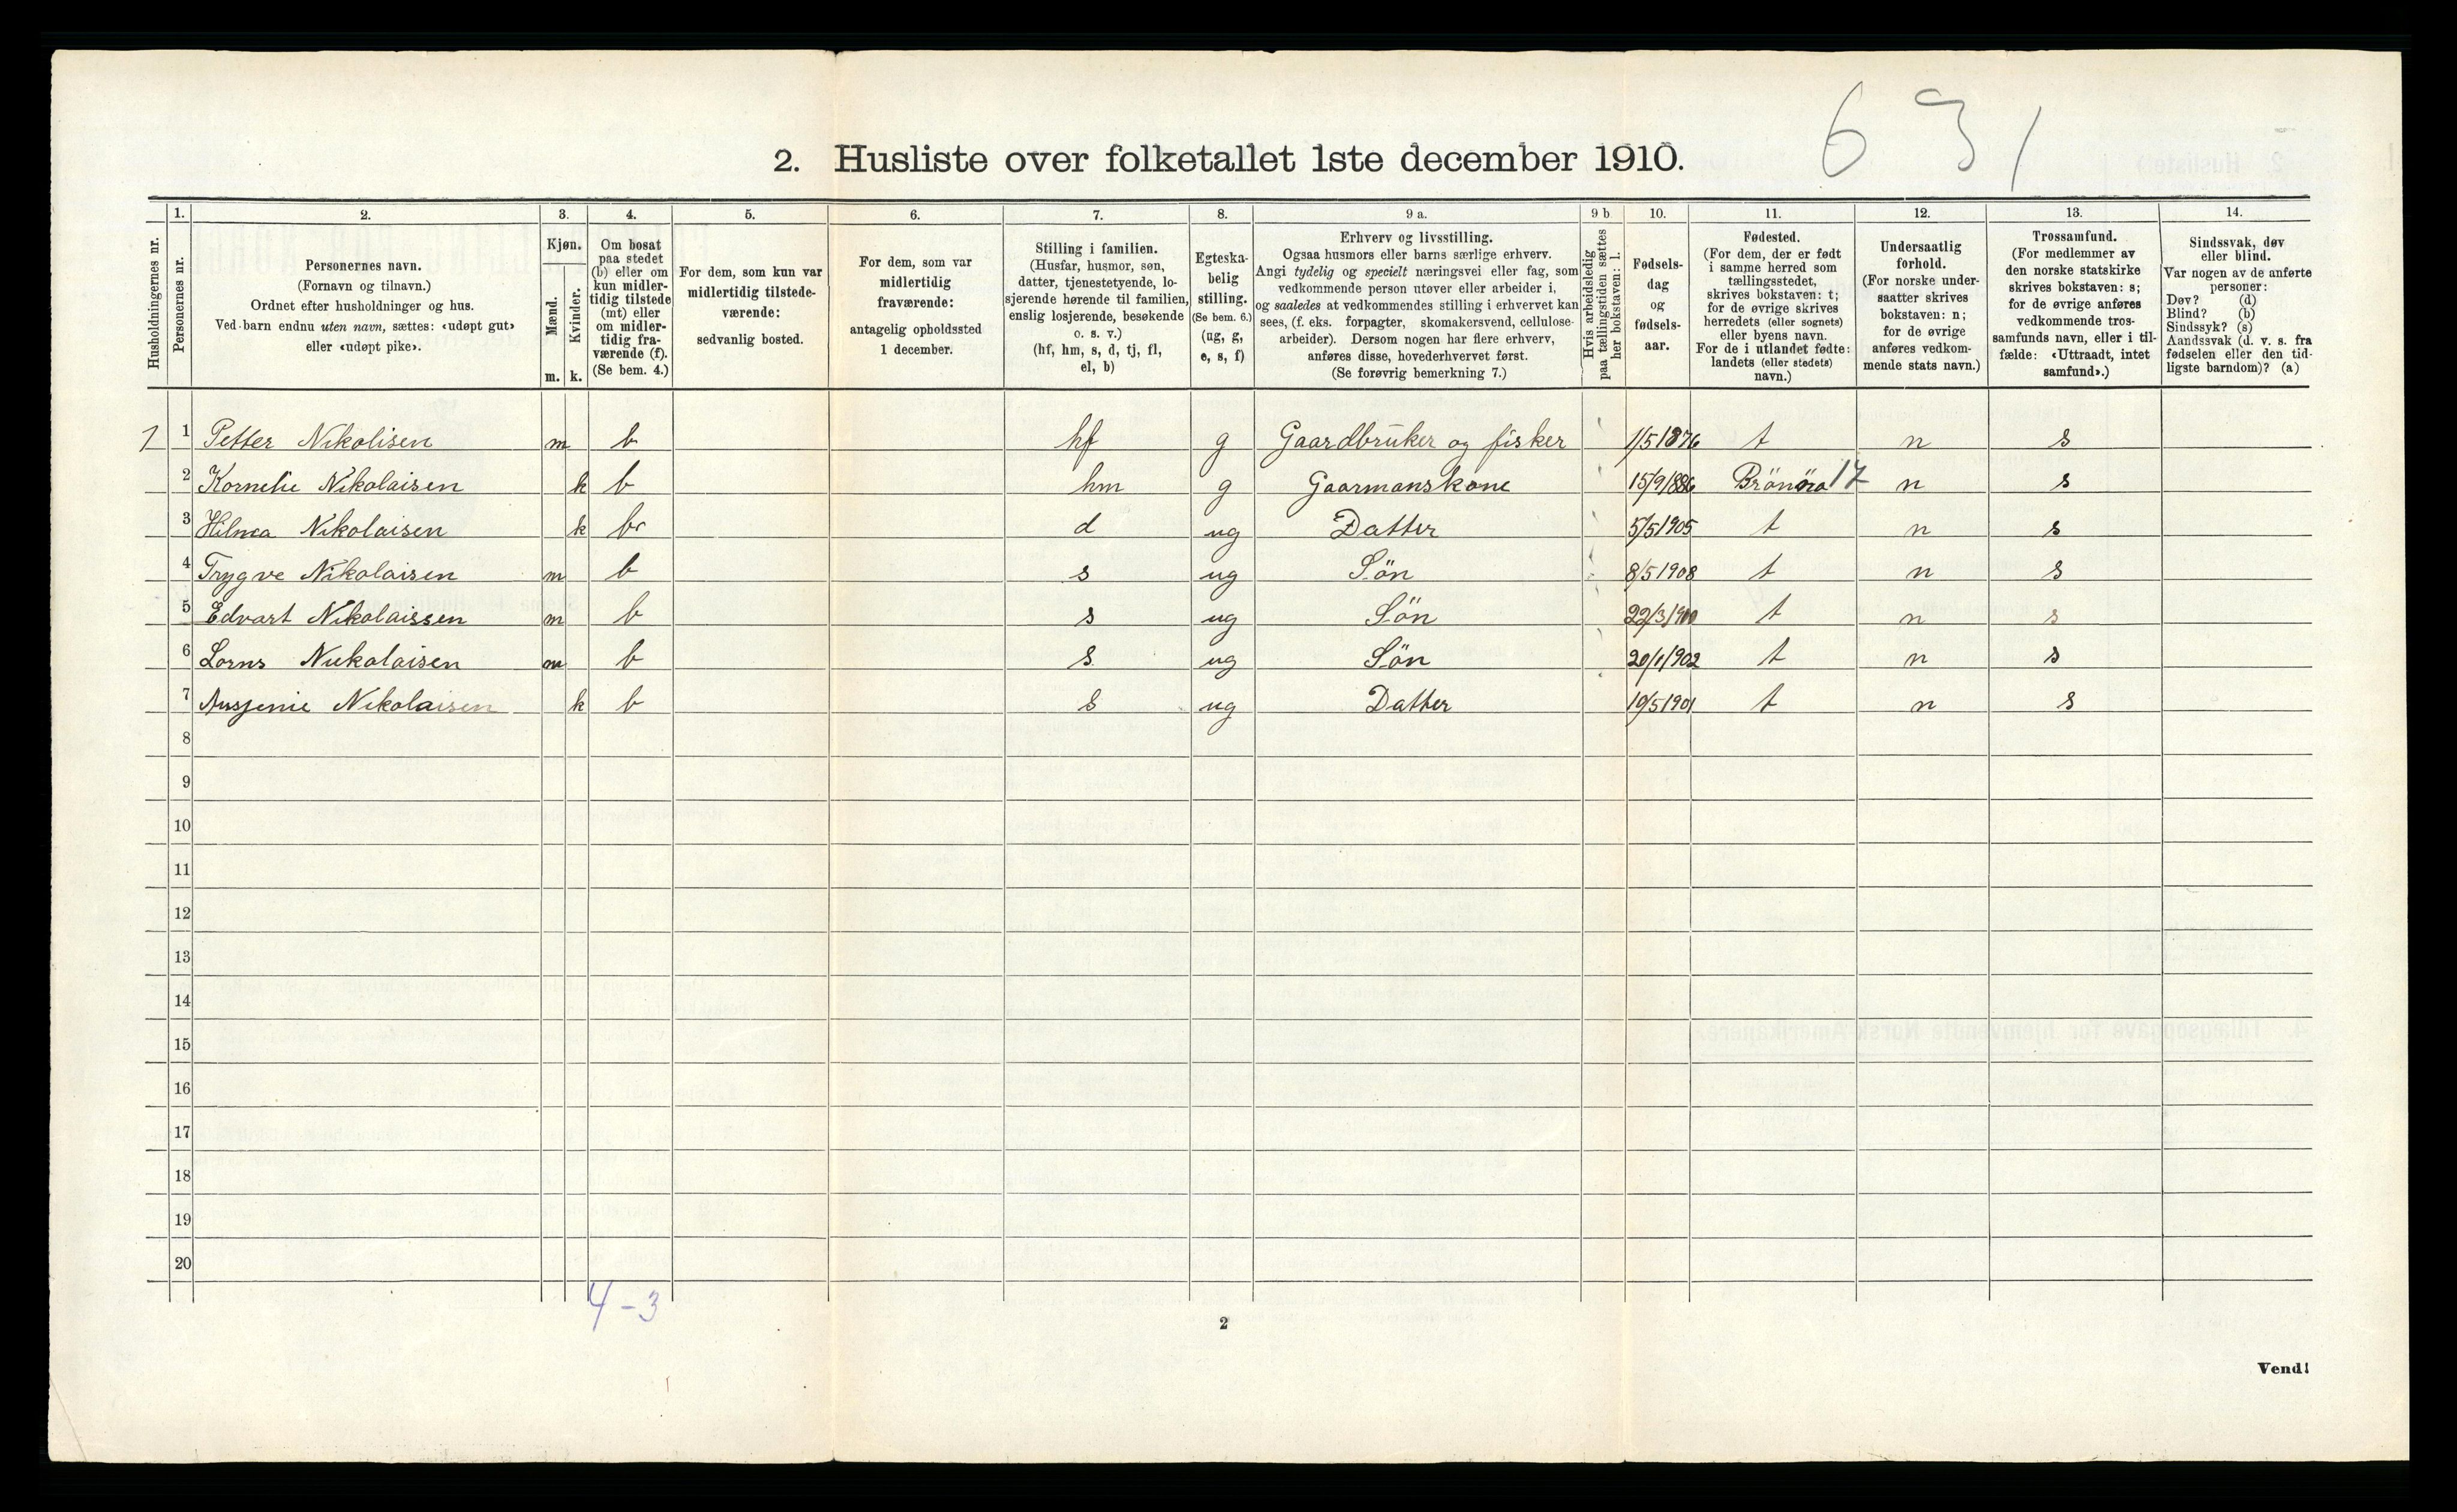 6 3 1
2. Husliste over folketallet 1ste december 1910.
Husholdningernes nr.
1.
Personernes nr.
2.
Personernes navn.
(Fornavn og tilnavn.)
Ordnet efter husholdninger og hus.
Ved barn endnu uten navn, sættes: «udøpt gut»
eller «udøpt pike».
3.
Kjøn.
Mænd.
Kvinder.
m. k.
4.
Om bosat
paa stedet
(b) eller om
kun midler-
tidig tilstede
(mt) eller
om midler-
tidig fra-
værende (f).
(Se bem. 4.)
5.
For dem, som kun var
midlertidig tilstede-
værende:
sedvanlig bosted.
6.
For dem, som var
midlertidig
fraværende:
antagelig opholdssted
1 december.
7.
Stilling i familien.
(Husfar, husmor, søn,
datter, tjenestetyende, lo-
sjerende hørende til familien,
enslig losjerende, besøkende
o. s. v.)
(hf, hm, s, d, tj, fl,
el, b)
8.
Egteska-
belig
stilling.
(Se bem. 6.)
(ug, g,
e, s, f)
9 a.
Erhverv og livsstilling.
Ogsaa husmors eller barns særlige erhverv.
Angi tydelig og specielt næringsvei eller fag, som
vedkommende person utøver eller arbeider i,
og saaledes at vedkommendes stilling i erhvervet kan
sees, (f. eks. forpagter, skomakersvend, cellulose-
arbeider). Dersom nogen har flere erhverv,
anføres disse, hovederhvervet først.
(Se forøvrig bemerkning 7.)
9 b
Hvis arbeidsledig
paa tællingstiden sættes
her bokstaven: l.
10.
Fødsels-
dag
og
fødsels-
aar.
11.
Fødested.
(For dem, der er født
i samme herred som
tællingsstedet,
skrives bokstaven: t;
for de øvrige skrives
herredets (eller sognets)
eller byens navn.
For de i utlandet fødte:
landets (eller stedets)
navn.)
12.
Undersaatlig
forhold.
(For norske under-
saatter skrives
bokstaven: n;
for de øvrige
anføres vedkom-
mende stats navn.)
13.
Trossamfund.
(For medlemmer av
den norske statskirke
skrives bokstaven: s;
for de øvrige anføres
vedkommende tros-
samfunds navn, eller i til-
fælde: «Uttraadt, intet
samfund».)
14.
Sindssvak, døv
eller blind.
Var nogen av de anførte
personer:
Døv? (d)
Blind? (b)
Sindssyk? (s)
Aandssvak (d. v. s. fra
fødselen eller den tid-
ligste barndom)? (a)
1 1 Petter Nikolisen m b hf g Gaardbruker og fisker 1/5 1876 t n s
2 Kornelie Nikolaisen k b hm g Gaarmanskone 15/9 1886 17 n s
3 Hilma Nikolaisen k b d ug Datter 5/5 1905 t n s
4 Trygve Nikolaisen m b s ug Sön 8/5 1908 t n s
5 Edvart Nikolaissen m b s ug Sön 22/3 1910 t n s
6 Lorns Nikolaisen m b s ug Sön 20/1 1902 t n s
7 Nikolaisen k b s ug Datter 19/5 1901 t n s
8
9
10
11
12
13
14
15
16
17
18
19
20
4 - 3
2
Vend!